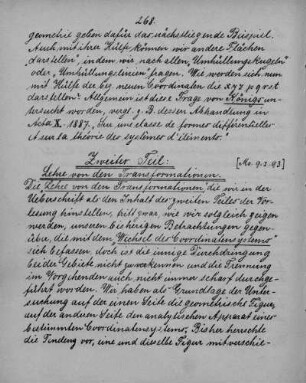 268.
geometrie geben dafür das nächstliegende Beispiel.
Auch mit ihrer Hülfe können wir andere Flächen
darstellen, indem wir nach allen „Umhüllungs-Kugeln"
oder „Umhüllungslinien" fragen. Wie werden sich nun
mit Hülfe der bez. neuen Coordinaten die x y z p q r s t
darstellen? Allgemein ist diese Frage von Königs un-
tersucht worden, vergl. z. B. dessen Abhandlung in
Acta X. 1887, „Sur une classe de formes différentielles
et sur la théorie des systèmes d'éléments".
Zweiter Teil:
[Mo. 9.1.93]
Lehre von den Transformationen.
Die Lehre von den Transformationen, die wir in der
Ueberschrift als den Inhalt des zweiten Teiles der Vor-
lesung hinstellen, tritt zwar, wie wir sogleich zeigen
werden, unseren bisherigen Betrachtungen gegen-
über, die mit dem Wechsel des Coordinatensystems
sich befassen, doch ist die innige Durchdringung
beider Gebiete nicht zu verkennen und die Trennung
im Vorgehenden auch nicht immer scharf durchge-
führt worden. Wir haben als Grundlage der Unter-
suchung auf der einen Seite die geometrische Figur,
auf der andern Seite den analytischen Apparat eines
bestimmten Coordinatensystems. Bisher herrschte
die Tendenz vor, eine und dieselbe Figur mit verschie-